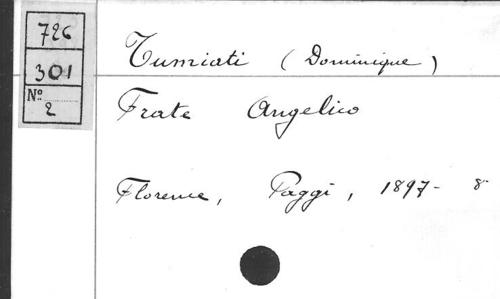 726
301
Nº
2
Tumiati (Dominique)
Frate Angelico
Florence, Paggi, 1897- 8º